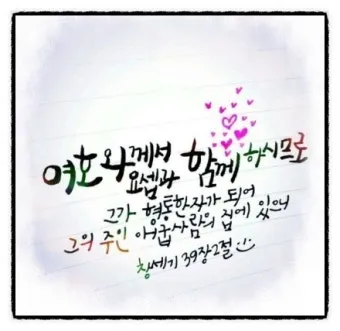 여호와께서 요셉과 함께 하시므로
그가 형통한 자가 되어
그의 주인 애굽사람의 집에 있으니
창세기 39장 2절